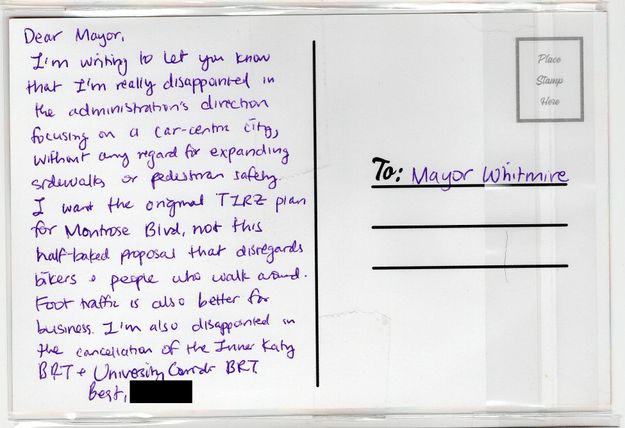 Dear Mayor,
I'm writing to let you know
that I'm really disappointed in
the administration's direction
focusing on a car-centric city,
without any regard for expanding
sidewalks or pedestrian safety.
I want the original TIRZ plan
for Montrose Blvd, not this
half-baked proposal that disregards
bikers & people who walk around.
Foot traffic is also better for
business. I'm also disappointed in
the cancellation of the Inner Katy
BRT + University Corridor BRT
Best,
Place
Stamp
Here
To: Mayor Whitmire